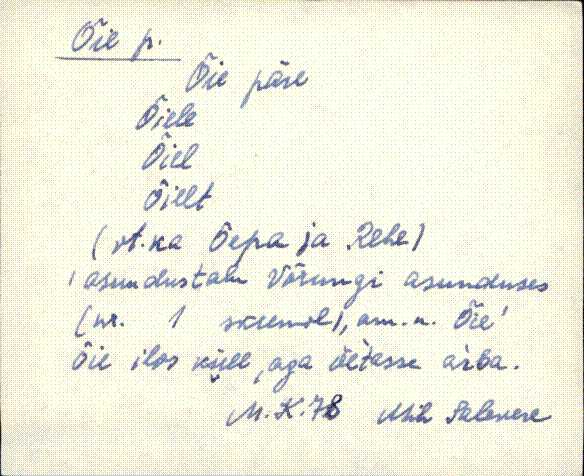 Õie p.
Õie päre
Õiele
Õiel
Õielt
(vt. ka Õepa ja Rehe)
'asundustalu Võrungi asunduses
(nr. 1 skeemil), om. n. Õie'
õie ilos küll, aga õètasse ärba.
M. K. 78 Mih